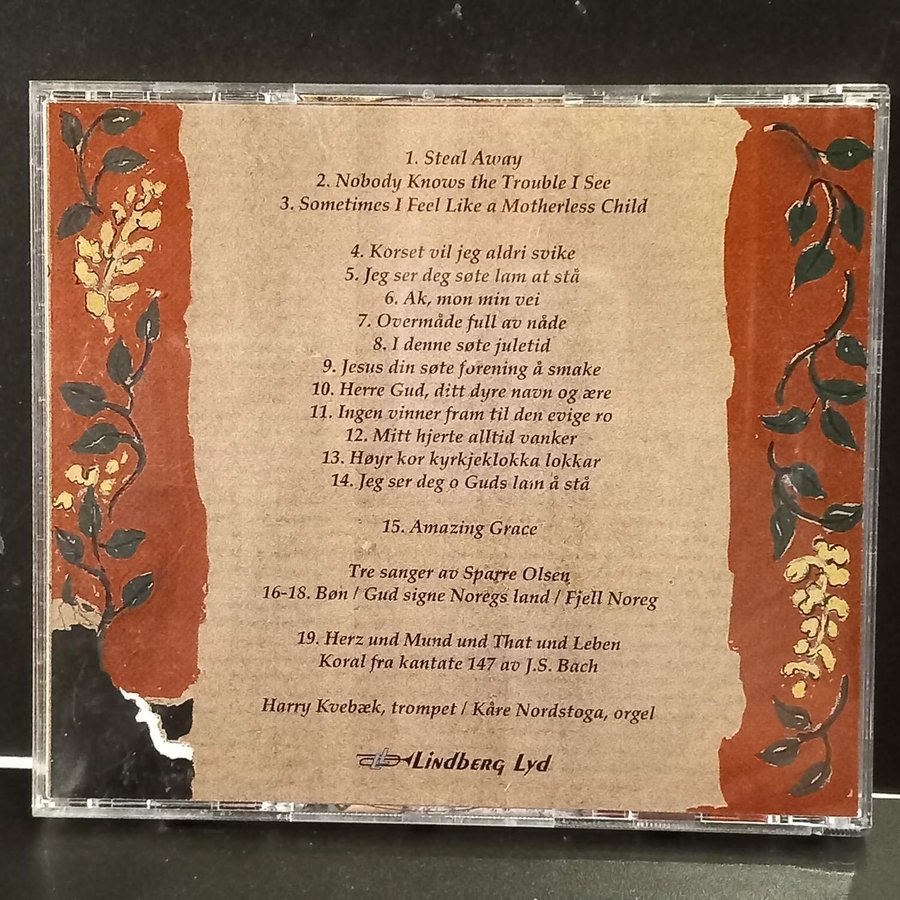 1. Steal Away
2. Nobody Knows the Trouble I See
3. Sometimes I Feel Like a Motherless Child
4. Korset vil jeg aldri svike
5. Jeg ser deg søte lam at stå
6. Ak, mon min vei
7. Overmåde full av nåde
8. I denne søte juletid
9. Jesus din søte forening å smake
10. Herre Gud, ditt dyre navn og ære
11. Ingen vinner fram til den evige ro
12. Mitt hjerte alltid vanker
13. Høyr kor kyrkjeklokka lokkar
14. Jeg ser deg o Guds lam å stå
15. Amazing Grace
Tre sanger av Sparre Olsen
16-18. Bøn / Gud signe Noregs land / Fjell Noreg
19. Herz und Mund und That und Leben
Koral fra kantate 147 av J.S. Bach
Harry Kvebæk, trompet / Kåre Nordstoga, orgel
Lindberg Lyd